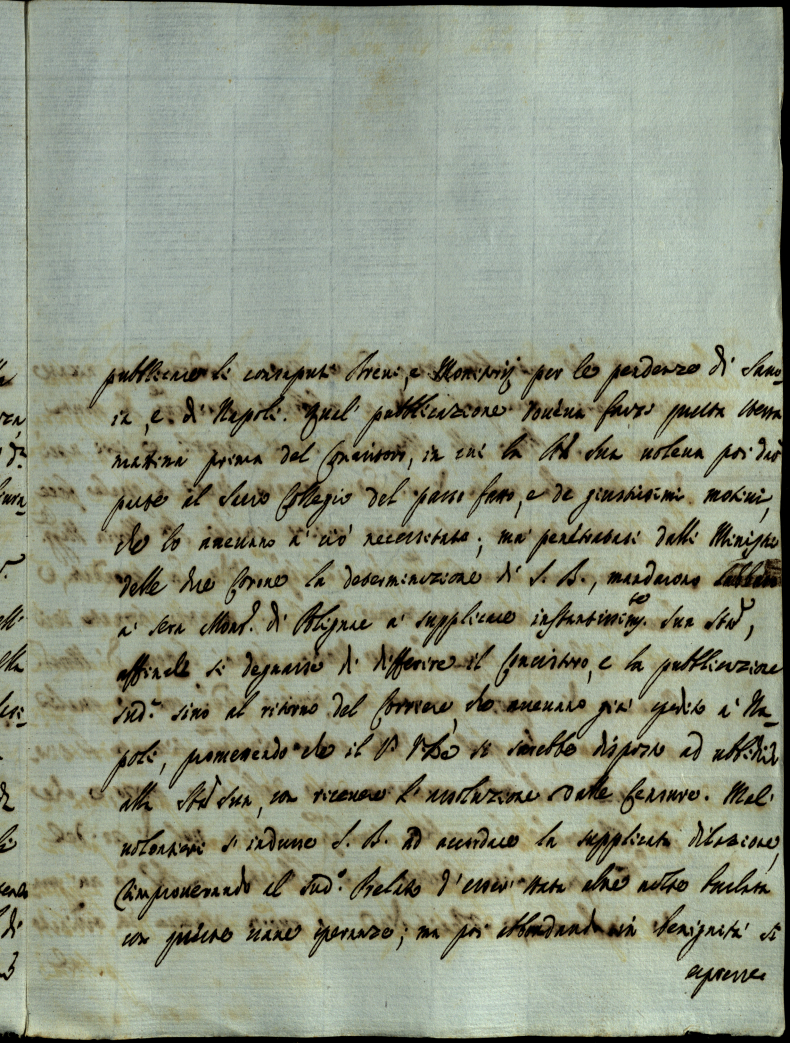 pubblicare li consaputi Brevi, e Monitorij per le pendenze di Savo-
ia, e di Napoli. Quel pubblicazione doueua farsi questa stessa
mattina prima del Concistoro, in cui la Stà Sua uoleua poi dar
parte al Sacro Collegio del passo fatto, e de giustissimi motiui,
che lo aueuano à ciò necessitato; mà penetratasi dalli Ministri
delle due Corone la determinazione di S. B., mandarono Sabbato
à sera Monsr. di Polignac à supplicare instantissimte. Sua Stà,
affinche si degnasse di differire il Concistoro, e la pubblicazione
sudª. sino al ritorno del Corriere, che aueuano già spedito à Na-
poli, promettendo che il si sarebbe disposto ad ubbidire
alla Stà Sua, con riceuere l'assoluzione dalle Censure. Mal'
uolontieri s'indusse S. B. ad accordare la supplicata dilazione,
rimprouerando al sudº. Prelato d'esser stata altre uolte burlata
con queste uane speranze; mà poi abbondando in benignità si
espresse